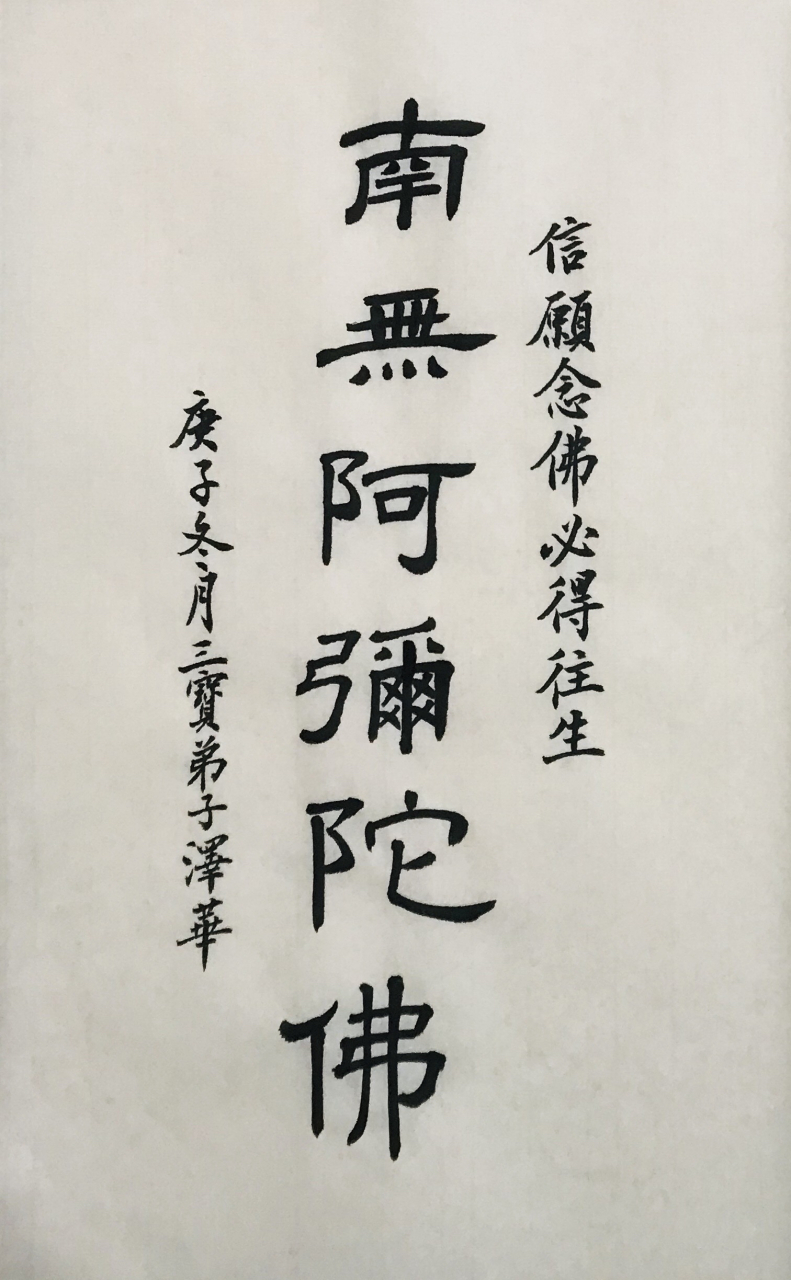 信願念佛必得往生
南無阿彌陀佛
庚子冬月三寶弟子澤華